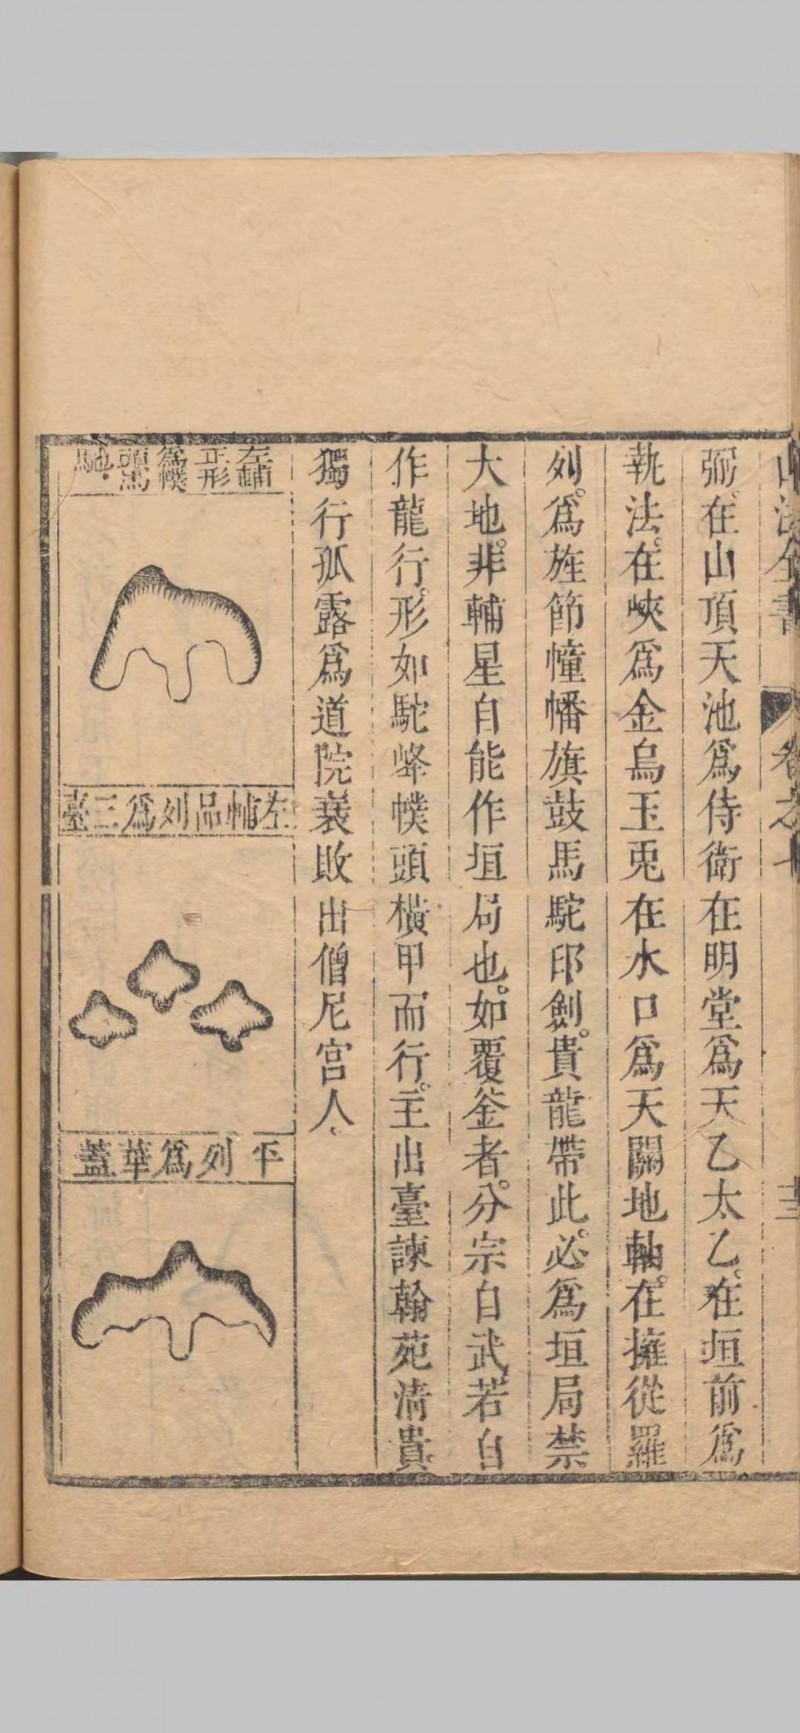 山法全書 卷之七 十三
弼。在山頂天池爲侍衛在明堂爲天乙太乙。在垣前爲
執法。在峽爲金烏玉兎在水口爲天關地軸。在擁從羅
列。爲旌節幢幡旗鼓馬駝印劍。貴龍帶此。必爲垣局禁
大地。非輔星自能作垣局也。如覆釜者。分宗自武若自
作龍行。形如駝峰幞頭橫甲而行。主出臺諫翰苑清貴
獨行孤露爲道院衰敗出僧尼宮人、
左輔正形爲幞頭馬馳
左輔品列爲三臺
平列爲華蓋